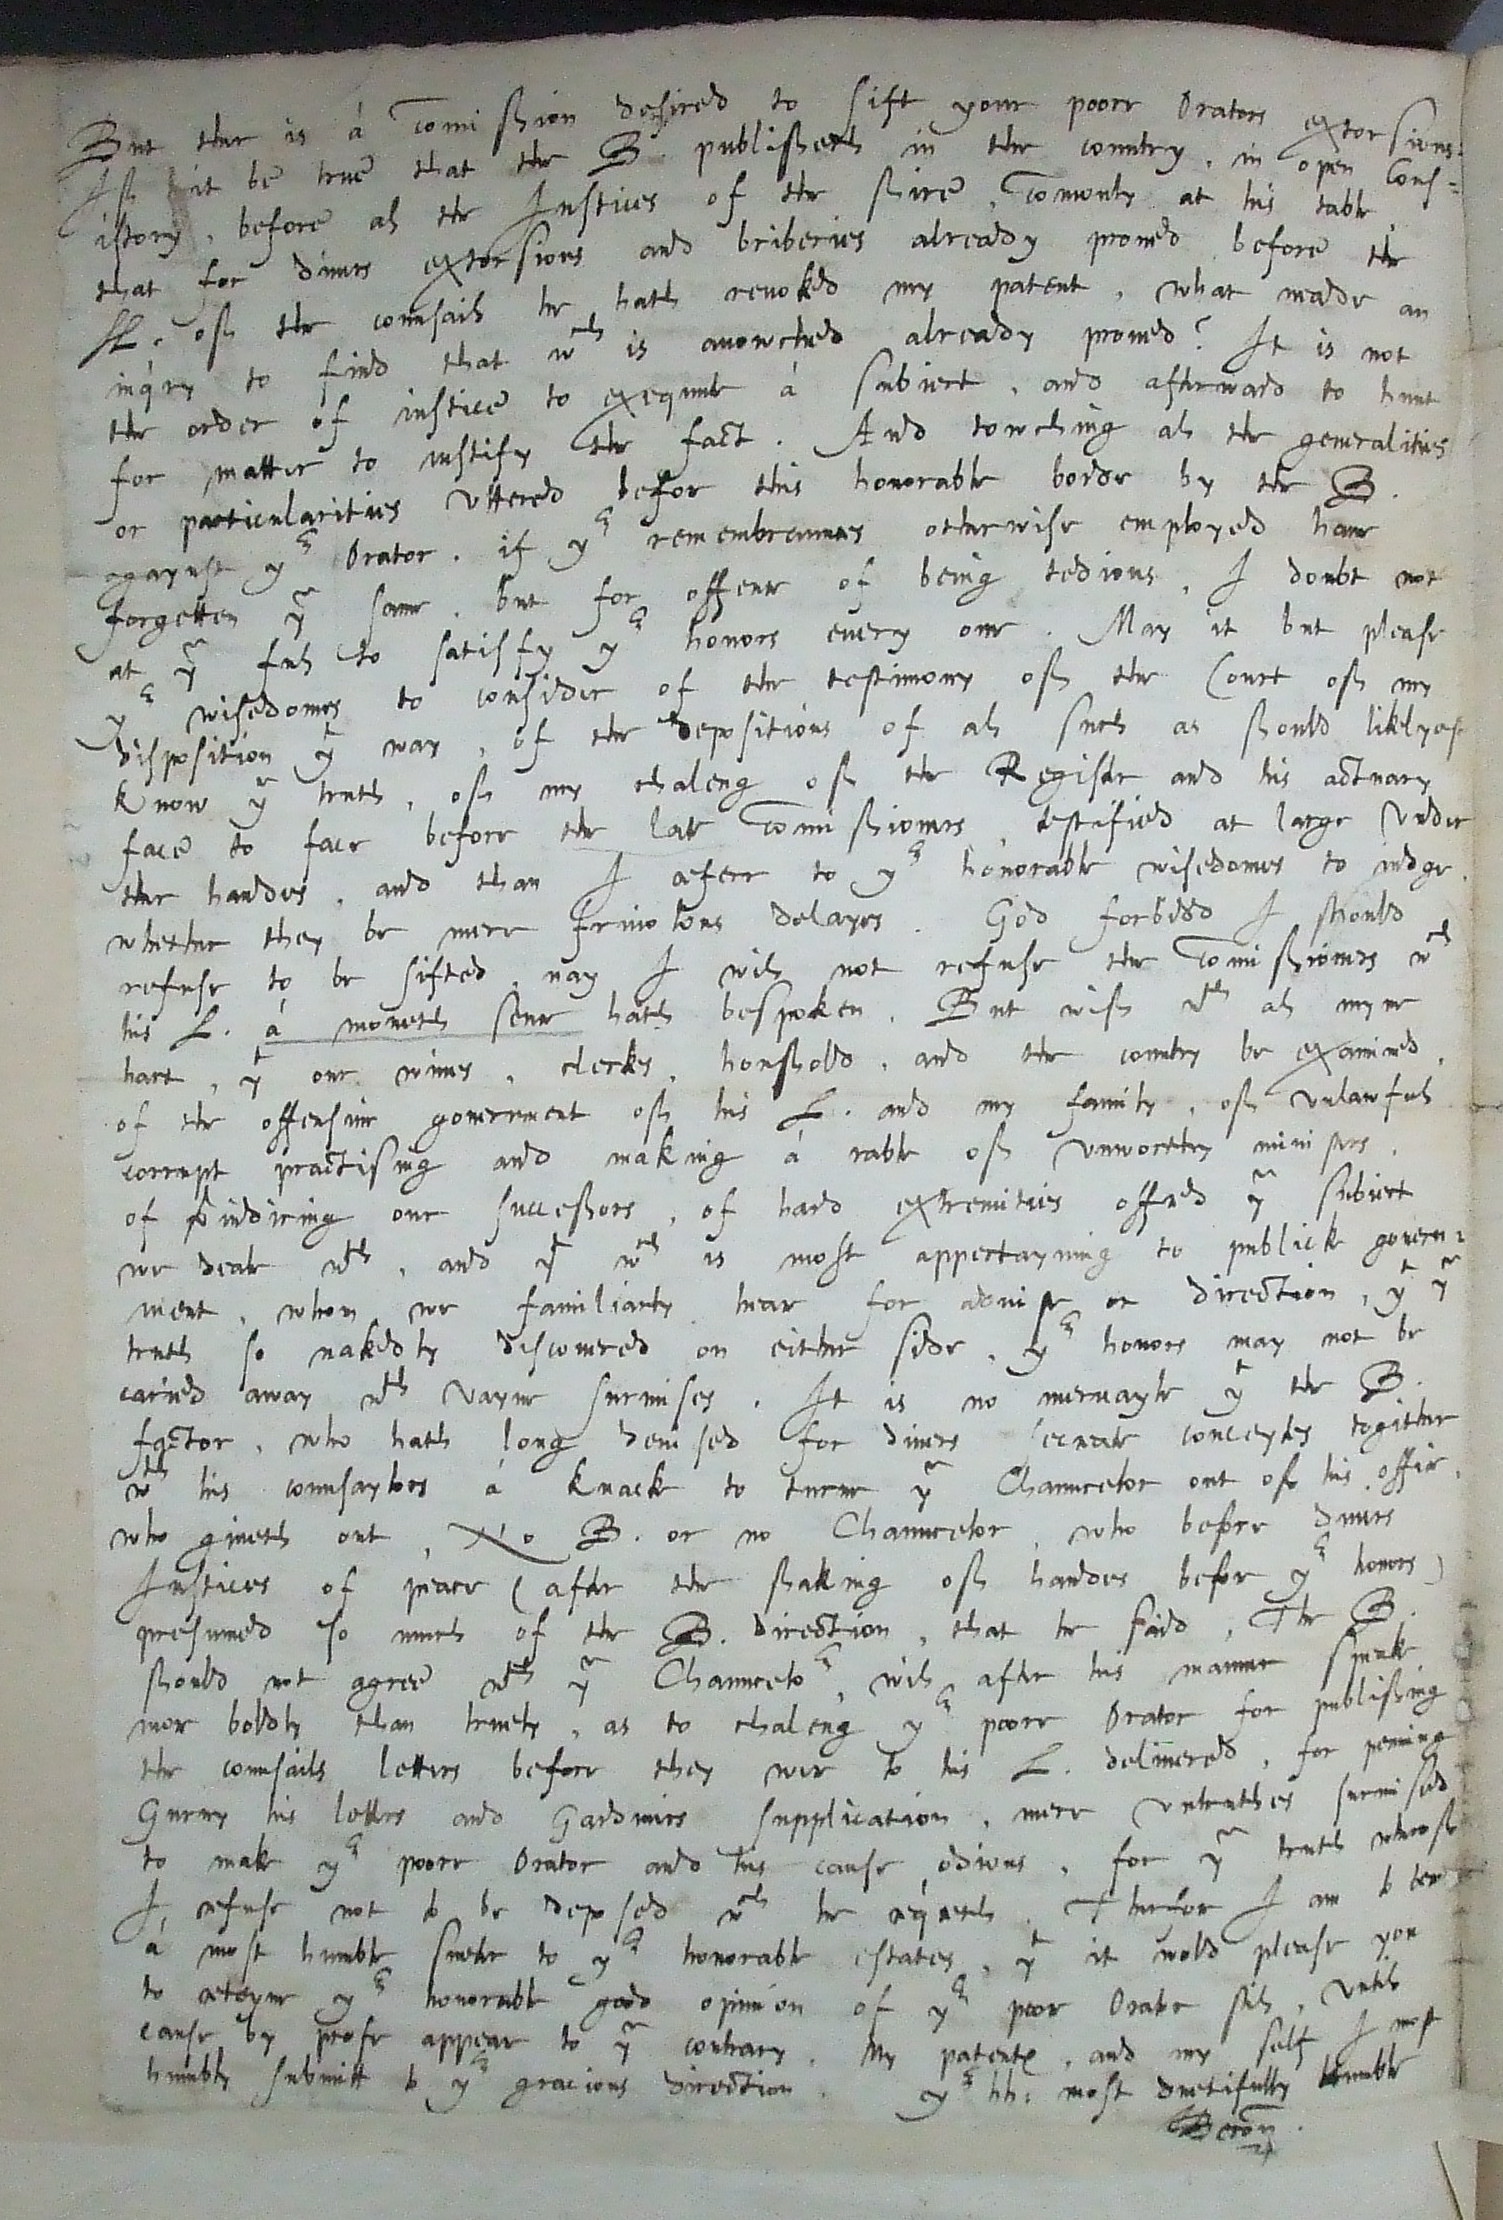 But ther is á Comission desired to sift your poore Orators extorsions.
If it be true that the B. publisheth in the country, in open Cons=
istory, before all the Justices of the shire, Comonly at his table,
that for diuers extorsions and briberies already proued before the
LL. of the counsail he hath reuoked my patent, what neade an
inq̃ry to find that wch is auowched already proued? It is not
the order of iustice to exequute á subiect, and afterward to hunt
for matter to iustify the fact. And towching all the generalities
or particularities vttered before this honorable borde by the B.
agaynst yr Orator, if yr remembraunces otherwise employed haue
forgotten ye same, but for offence of being tedious, I doubt not
at ye full to satisfy yr honors euery one. May it but please
yr wisedomes to consider of the testimony of the Court of my
disposition yt way, of the depositions of all such as should liklyest
know ye truth, of my chaleng of the Register and his actuary
face to face before the late Comissioners, testified at large vnder
ther handes, and than I referr to yr honorable wisedomes to iudge,
whether they be mere friuolous delayes. God forbidd I should
refuse to be sifted, nay I will not refuse the Comissioners wch
his L. á moneth senc hath bespoken. But wish wth all myne
hart, yt our wiues, clerks, houshold, and the country be examined,
of the offensiue gouernment of his L. and my family, of vnlawfull
corrupt practising and making á rable of vnworthy ministers,
of preiudicing our successors, of hard extremities offred ye subiect
we deale wth, and yt wch is most appertayning to publick gouern=
ment, whom we familiarly hear for aduise or direction, yt ye
truth so nakedly discouered on either side, yr honors may not be
caried away wth vayne surmises. It is no meruayle yt the B.
factor, who hath long deuised for diuers secreate conceytes togither
wth his counsaylors á knack to turne ye Chauncelor out of his office,
who giueth out, No B. or no Chauncelor, who before diuers
Justices of peace (after the shaking of handes before yr honors)
presumed so much of the B. direction, that he said, The B.
should not agree wth ye Chauncelor, will after his manner speake
mor boldly than truely, as to chaleng yr poore Orator for publishing
the counsails letters before they wer to his L. deliuered, for pening
Gurny his letters and Gardiners supplication, mere vntruthes surmised
to make yr poore Orator and his cause odious, for ye truth wherof
I refuse not to be deposed wch he req̃reth. Therfor I am to be
á most humble suter to yr honorable estates, yt it wold please you
to reteyne yr honorable good opinion of yr poor Orator still, vntill
cause by profe appear to ye contrary. My patent, and my self I most
humbly submitt to yr gracious direction. yr hh: most duetifully humble